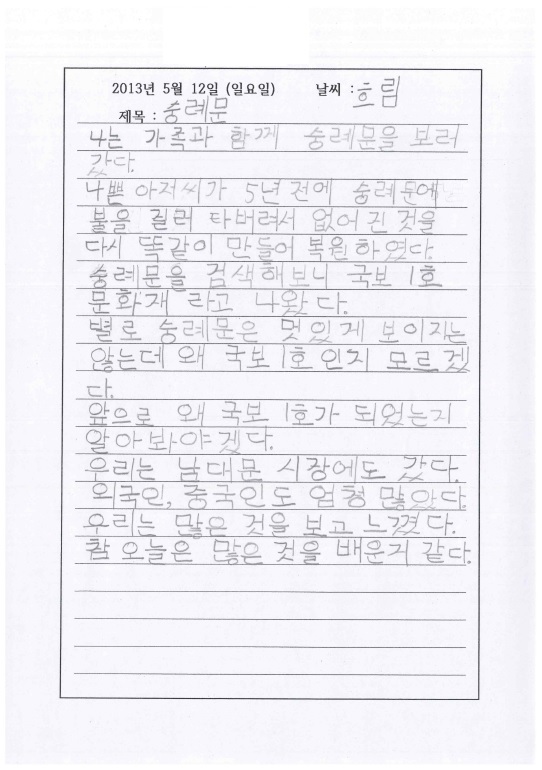 2013년 5월 12일 (일요일) 날씨 : 흐림
제목 : 숭례문
나는 가족과 함께 숭례문을 보러
갔다.
나쁜 아저씨가 5년 전에 숭례문에
불을 질러 타버려서 없어진 것을
다시 똑같이 만들어 복원하였다.
숭례문을 검색해보니 국보 1호
문화재 라고 나왔다.
별로 숭례문은 멋있게 보이지는
않는데 왜 국보 1호인지 모르겠
다.
앞으로 왜 국보 1호가 되었는지
알아봐야겠다.
우리는 남대문 시장에도 갔다.
외국인, 중국인도 엄청 많았다.
우리는 많은 것을 보고 느꼈다.
참 오늘은 많은 것을 배운거 같다.